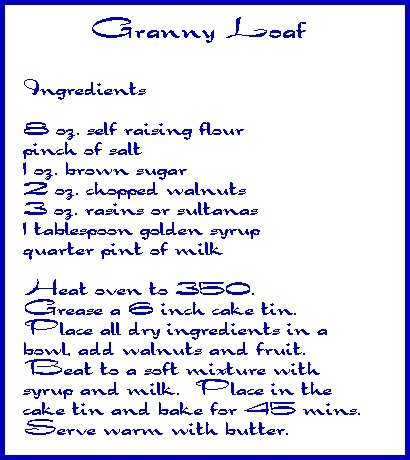 Granny Loaf
Ingredients
8 oz. self raising flour
pinch of salt
1 oz. brown sugar
2 oz. chopped walnuts
3 oz. rasins or sultanas
1 tablespoon golden syrup
quarter pint of milk
Heat oven to 350.
Grease a 6 inch cake tin.
Place all dry ingredients in a
bowl, add walnuts and fruit.
Beat to a soft mixture with
syrup and milk. Place in the
cake tin and bake for 45 mins.
Serve warm with butter.